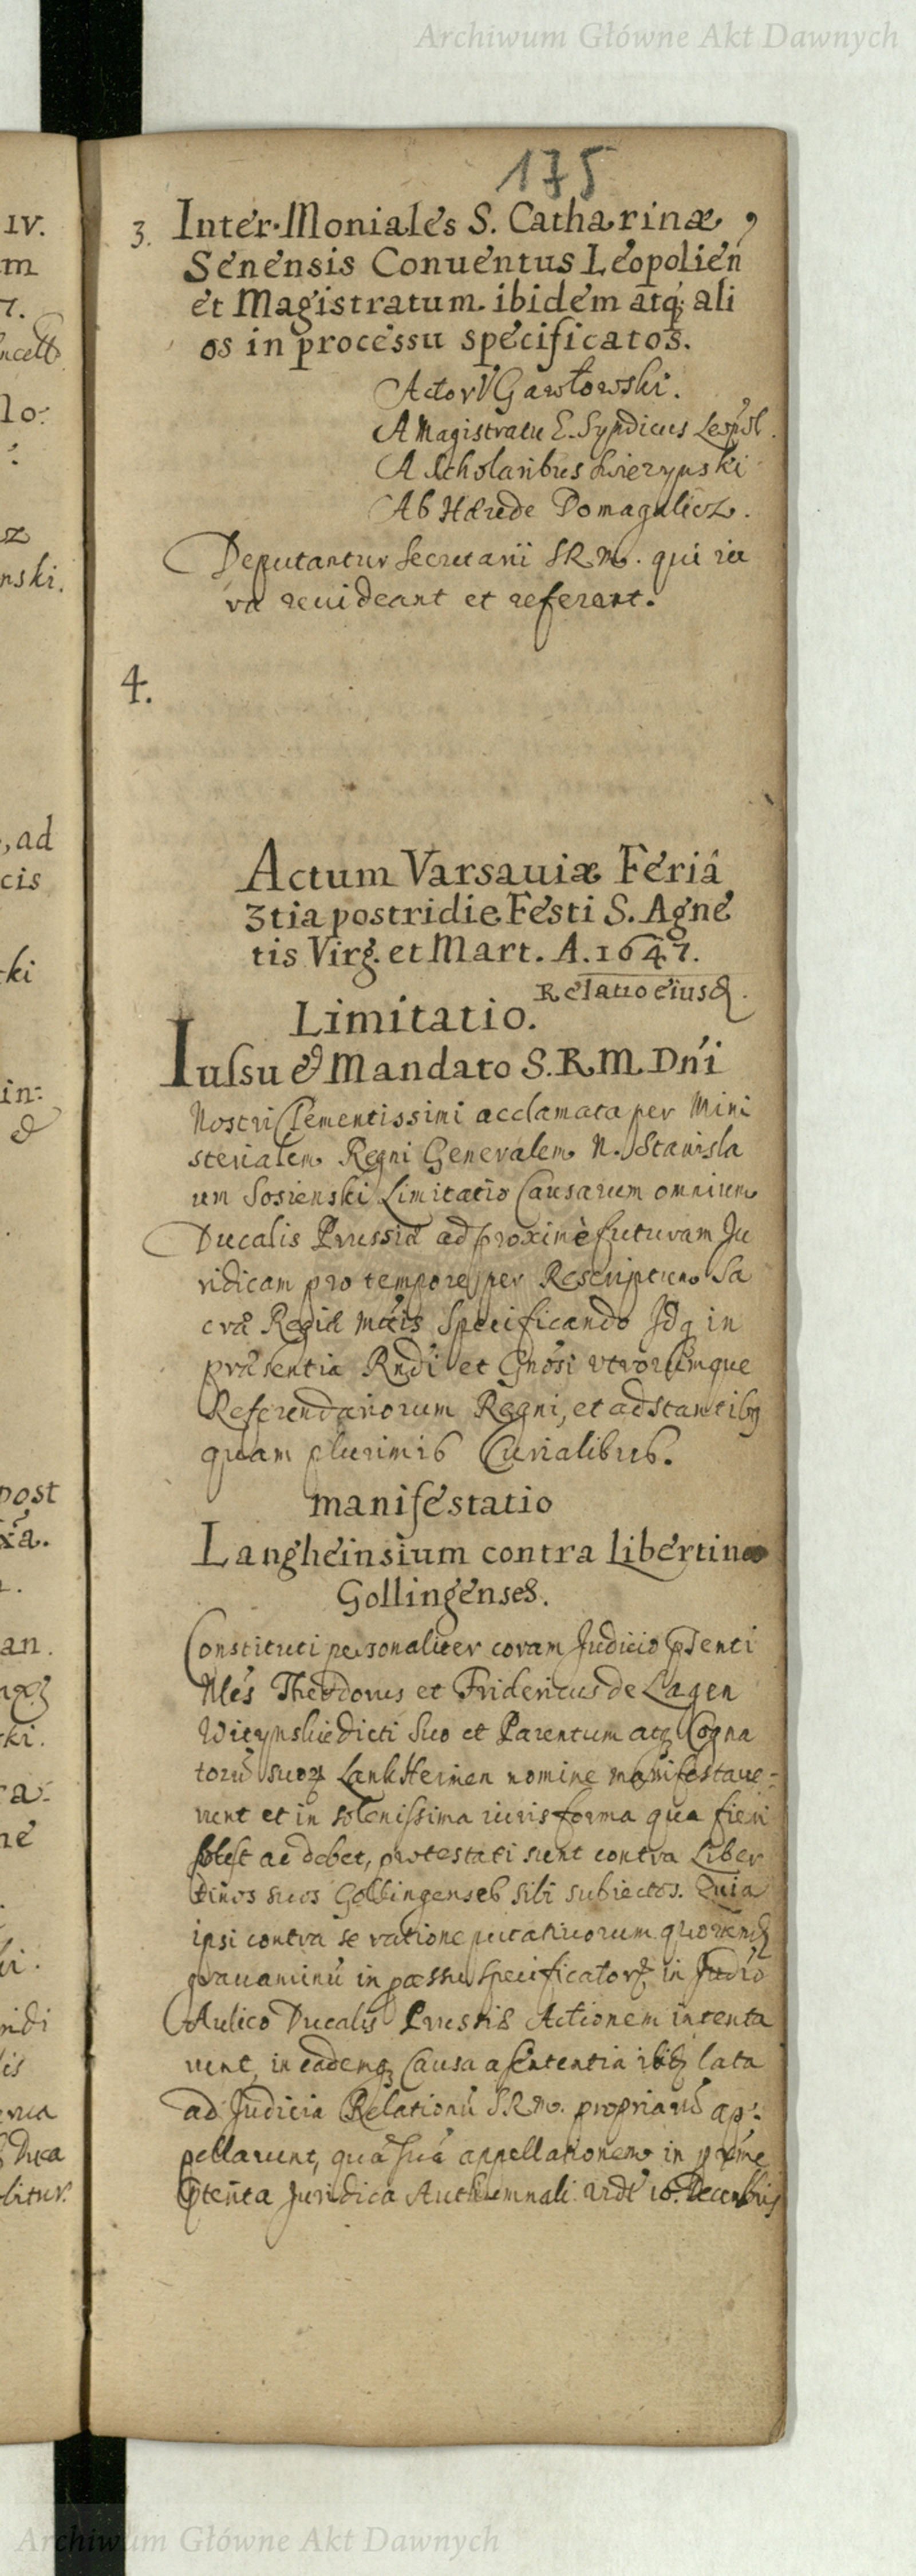 Archiwum Główne Akt Dawnych
175
3. Inter Moniales S. Catharinæ,
Senensis Conuentus Leopolien
et Magistratum ibidem atq; ali
os in processu specificatos.
Actor V Gawłowski.
A Magistratu E. Syndicus Leopol.
A Scholaribus
Ab Hærede Domagalicz.
Deputantur Secretarii SRM. qui iu
ra reuideant et referant.
4.
Actum Varsauiæ Feriâ
3tia postridie Festi S. Agne
tis Virg. et Mart. A. 1647.
Relatio eiusd.
Limitatio.
Iussu & Mandato S.R.M. Dn̄i
Nostri Clementissimi acclamata per Mini
sterialem Regni Generalem N. Stanisla
um Sosienski Limitatio Causarum omnium
Ducalis Prussiæ ad proximè futuram Ju
ridicam pro tempore per Rescriptum Sa
cræ Regiæ Mttis Specificando Idq in
præsentia Rndi et Gnosi utrorumque
Referendariorum Regni, et adstantibq
quam plurimis Curialibus.
manifestatio
Langheinsium contra Libertinos
Gollingenses.
Constituti personaliter coram Judicio pſenti
Nles Theodorus et Fridericus de Lagen
dicti Suo et Parentum atq Cogna
torū suorq nomine manifestaue=
runt et in solenissima iuris forma qua fieri
solet ac debet, protestati sunt contra Liber
tinos suos Gollingenses sibi subiectos. Quia
ipsi contra se ratione putatiuorum
grauaminū in pcessu specificatorq in Judio
Aulico Ducalis Prussiæ Actionem intenta
runt, in eademq Causa a sententia lata
ad Judicia Relationū SRM. propriarū ap:
pellarunt, quā suā appellationem in
Juridica Authumnali 16. Decembris
IV.
m
7.
lo:
nski.
,ad
cis
ki
in:
&
post
an.
ki.
ra:
ne
ndi
lis
Archiwum Główne Akt Dawnych